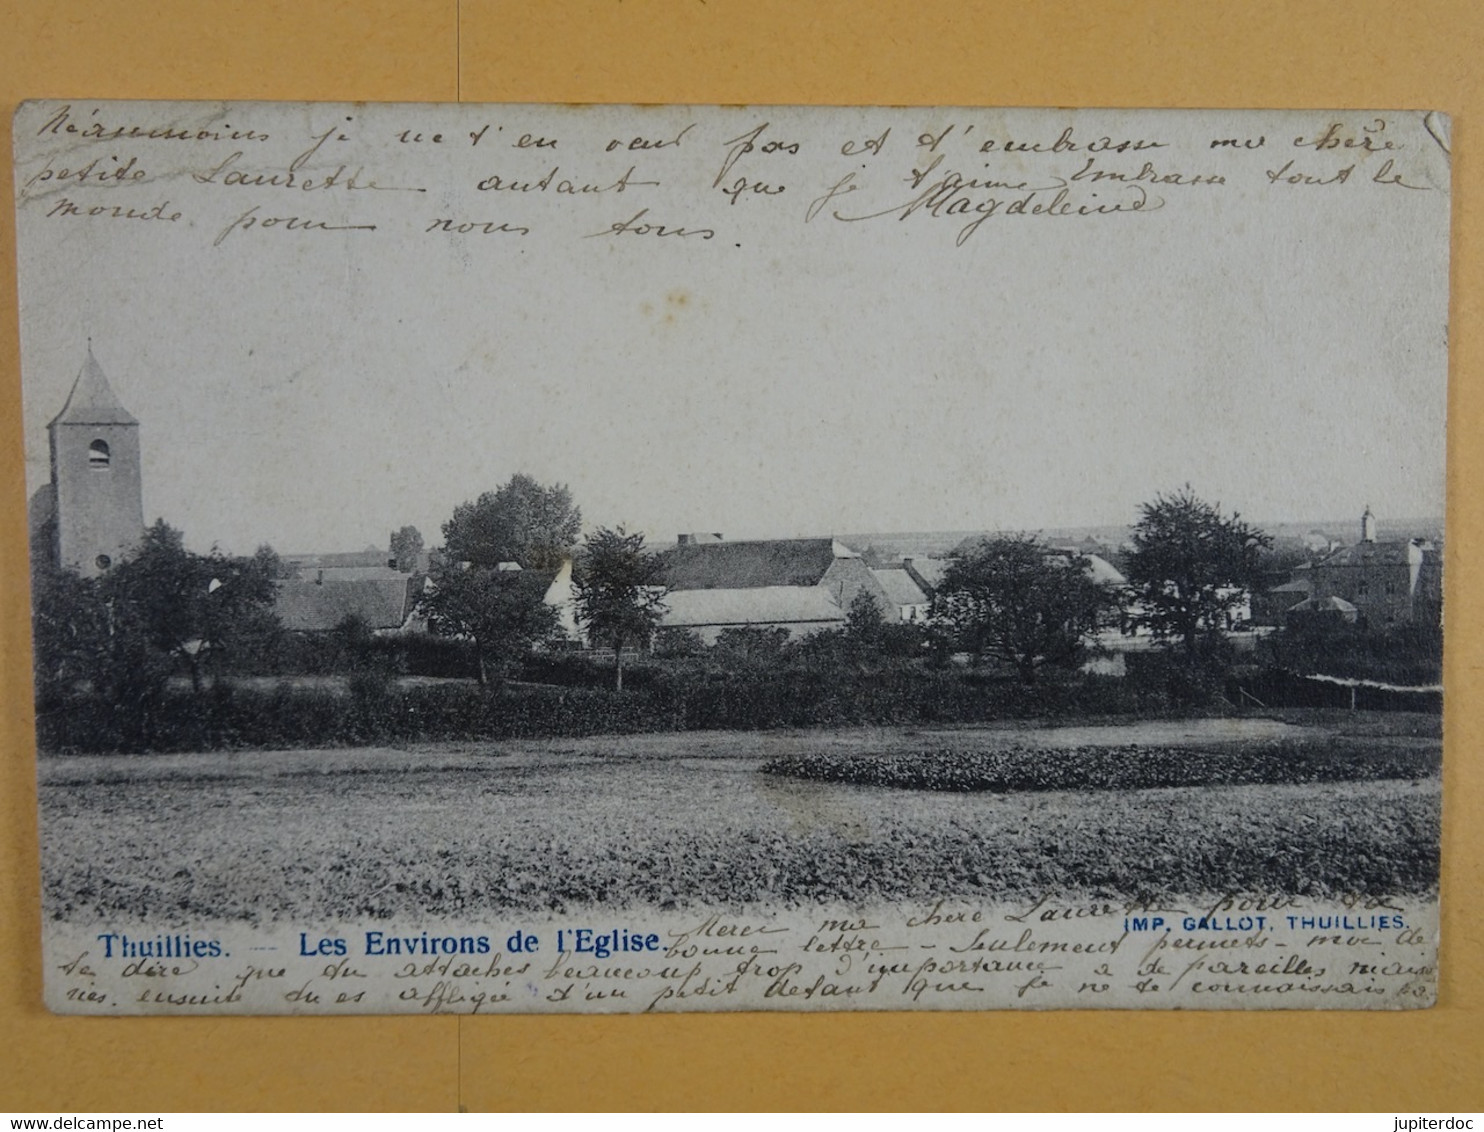 Néanmoins je ne t'en veut pas et t'embrasse ma chère
petite Laurette autant que je t'aime Embrasse tout le
monde pour nous tous. Magdeleine
Merci ma chère Laurette pour ta
IMP. GALLOT, THUILLIES.
Thuillies. — Les Environs de l'Eglise.
bonne lettre – Seulement permets-moi de
te dire que tu attaches beaucoup trop d'importance a de pareilles niaise
ries. ensuite tu es affligée d'un petit defaut que je ne te connaissais pas
delcampe.net
jupiterdoc